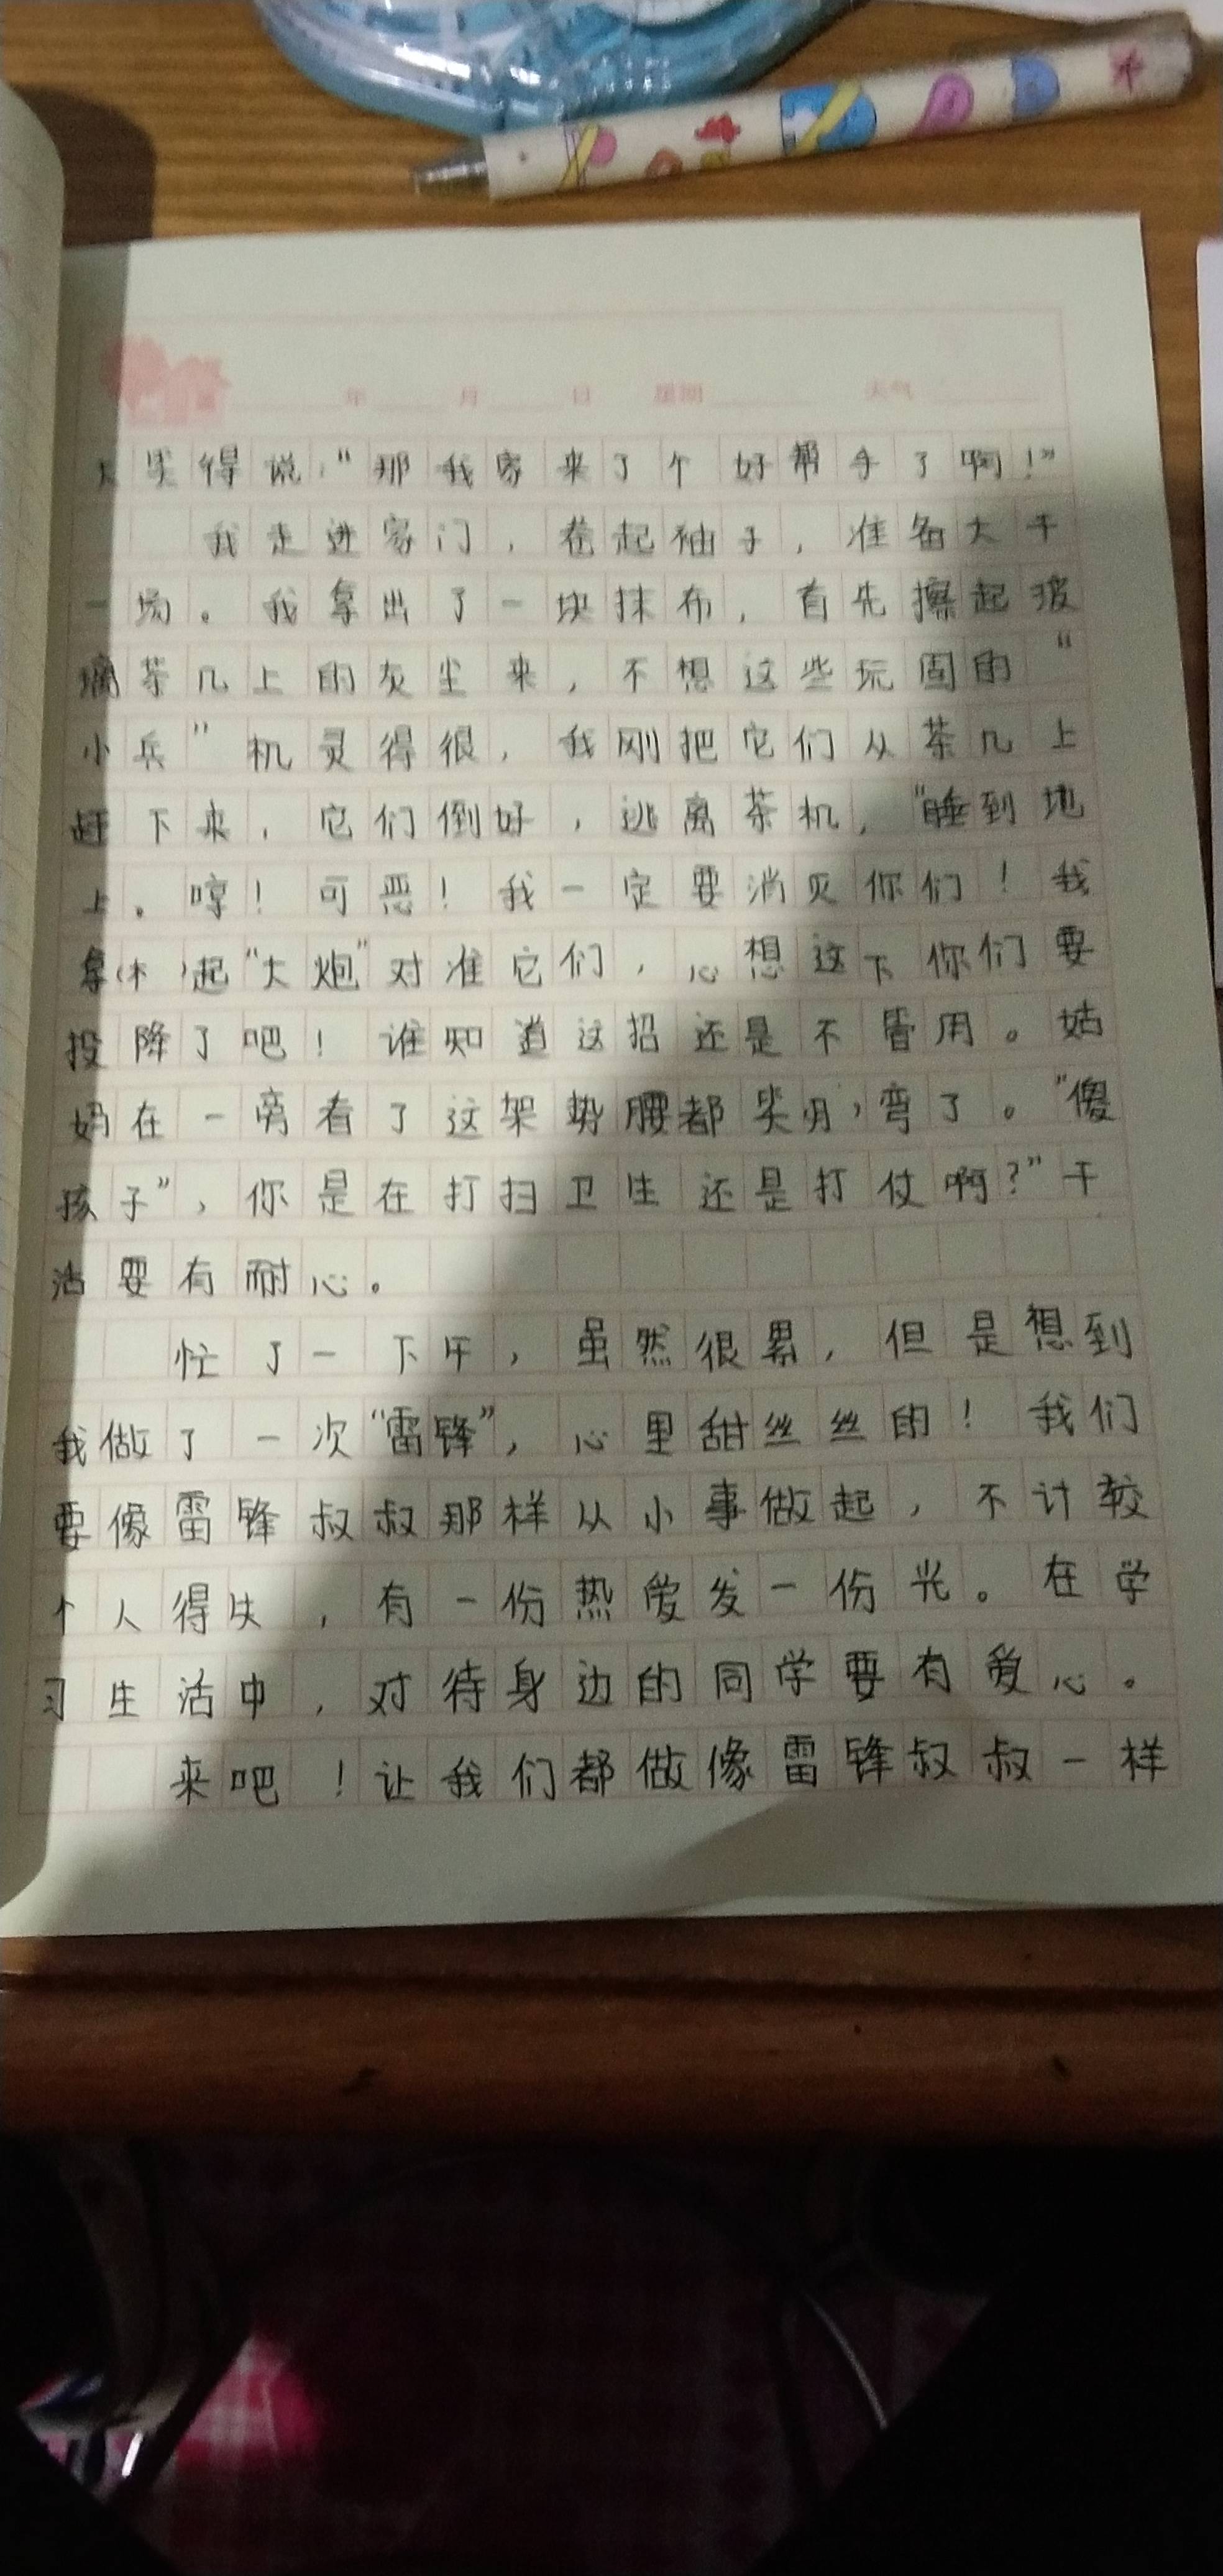 年 月 日 星期 天气
大笑得说，“那我家来了个好帮手了啊！”
我走进家门，卷起袖子，准备大干
一场。我拿出了一块抹布，首先擦起玻
璃茶几上的灰尘来，不想这些玩固的“
小兵”机灵得很，我刚把它们从茶几上
赶下来，它们倒好，逃离茶机，“睡到地
上。哼！可恶！我一定要消灭你们！我
拿(不)起“大炮”对准它们，心想这下你们要
投降了吧！谁知道这招还是不管用。姑
妈在一旁看了这架势腰都笑弯了。“傻
孩子”，你是在打扫卫生还是打仗啊？”干
活要有耐心。
忙了一下午，虽然很累，但是想到
我做了一次“雷锋”，心里甜丝丝的！我们
要像雷锋叔叔那样从小事做起，不计较
个人得失，有一份热爱发一份光。在学
习生活中，对待身边的同学要有爱心。
来吧！让我们都做像雷锋叔叔一样